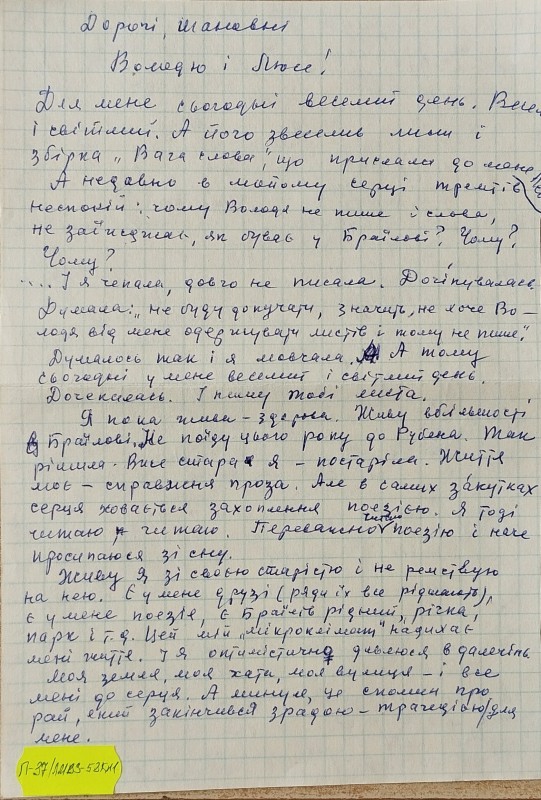 Дорогі, шановні
Володю і Люсе!
Для мене сьогодні веселий день.
і світлий. А його звеселив лиш і
збірка „Вага слова", що прислали до мене
А недавно в мойому серці тремтів
неспокій: чому Володя не пише і слова,
не заїжджає, як буває у Браїлові? Чому?
Чому?
.... І я чекала, довго не писала.
Думала: „не буду докучати, значить, не хоче Во-
лодя від мене одержувати листів і тому не пише".
Думалось так і я мовчала. А тому
сьогодні у мене веселий і світлий день.
Дочекалась. І пишу тобі листа.
Я поки жива-здорова. Живу в більшості
в Браїлові. Не поїду цього року до Рубена. Так
рішила. Вже стара я – постаріла. Життя
моє – справжня проза. Але в самих закутках
серця ховається захоплення поезією. Я тоді
читаю читаю. Переважно поезію і наче
просипаюся зі сну.
Живу я зі своєю старістю і не ремствую
на нею. Є у мене друзі (ряди їх все рідшають),
є у мене поезія, є Браїлів рідний, річка,
парк і т.д. Цей мій „мікроклімат" надихає
мені життя. І я оптимістично дивлюся в далечінь
Моя земля, моя хата, моя вулиця – і все
мені до серця. А минуле, це спомин про
рай, який закінчився зрадою – трагедією/для
мене.